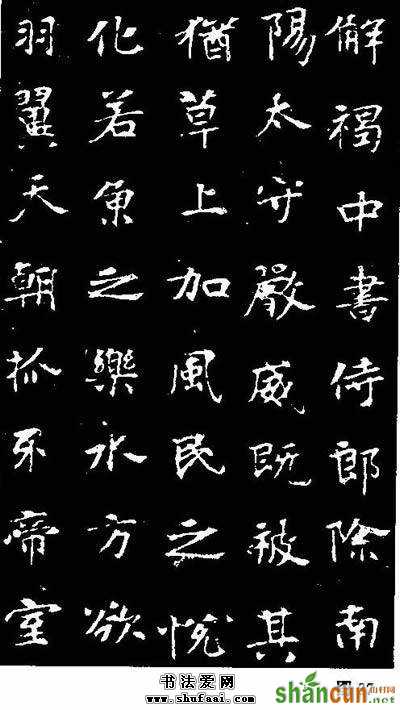 解褐中書侍郎除南
陽太守嚴威既被其
猶草上加風民之悅
化若魚之樂水方欲
羽翼天朝抓牙帝室
书法爱网
www.shufaai.com
图
shancun
山村网
.net